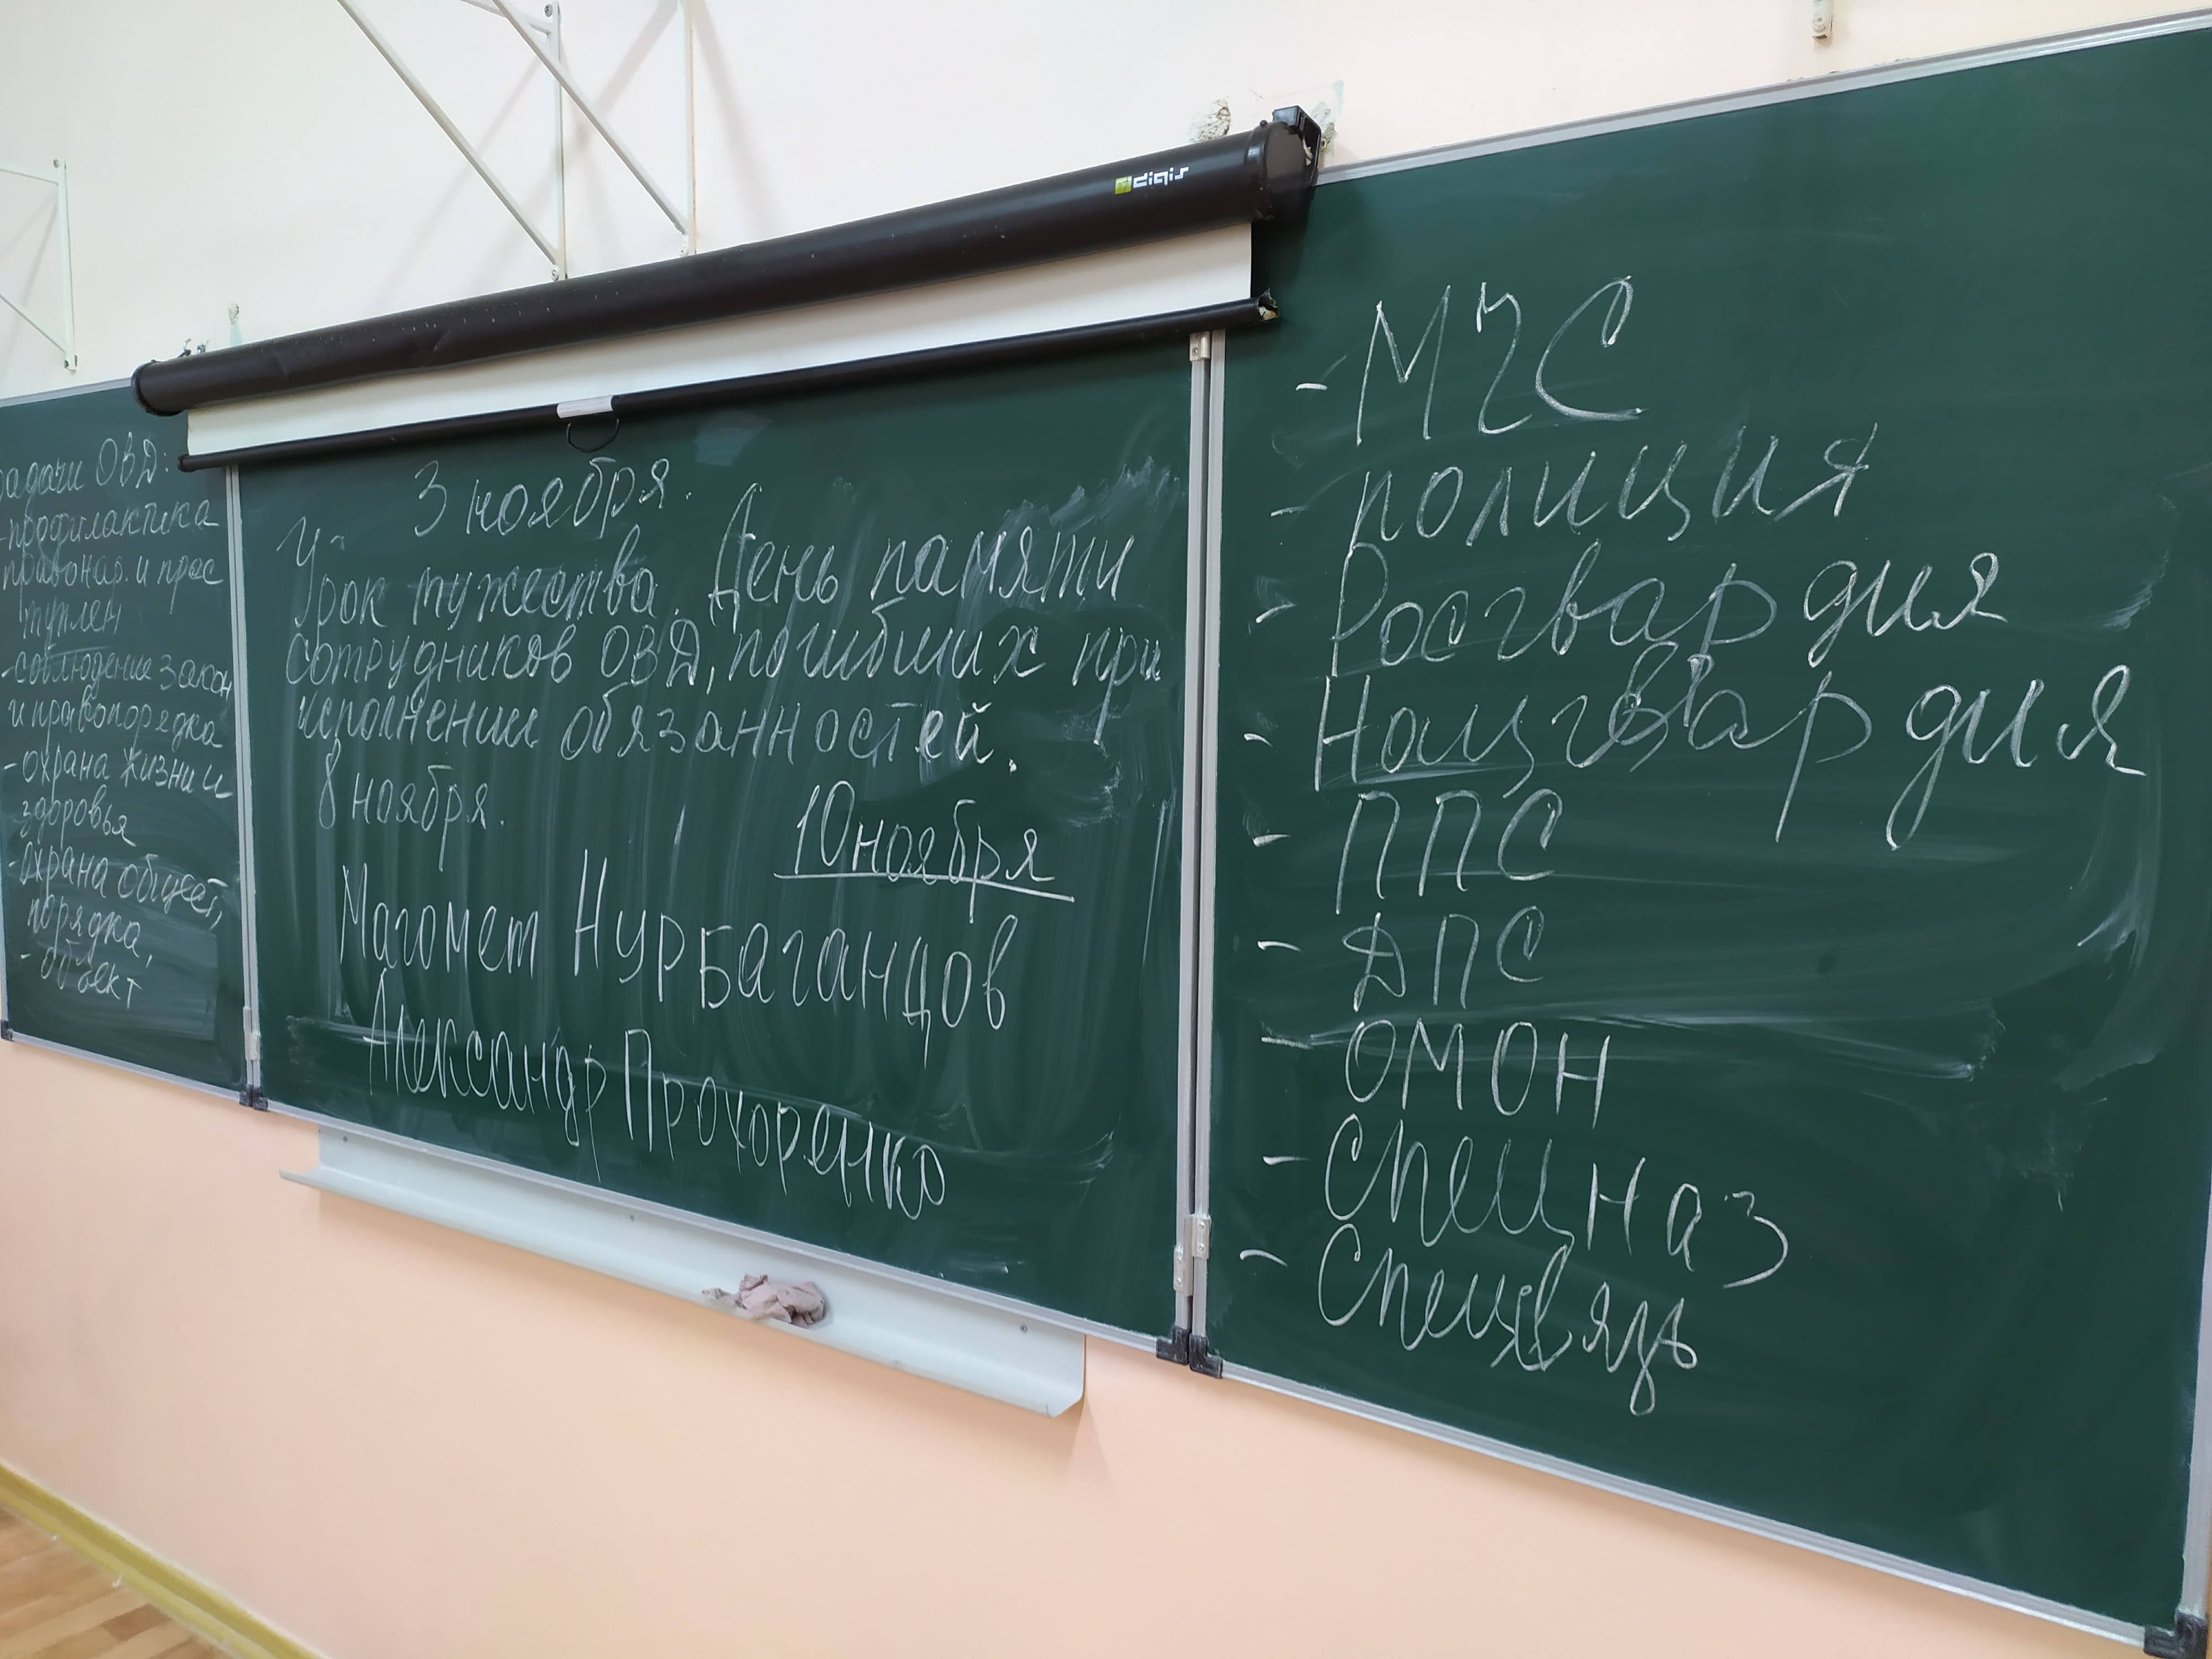 digis
задачи ОВД:
- профилактика
правонар. и прес
туплен
- соблюдение закон
и правопорядка
- охрана жизни и
здоровья
- охрана общест,
порядка,
- объект
3 ноября.
Урок мужества. День памяти
сотрудников ОВД, погибших при
исполнении обязанностей.
8 ноября.
10 ноября
Магомет Нурбагандов
Александр Прохоренко
- МЧС
- полиция
- Росгвардия
- Нацгвардия
- ППС
- ДПС
- ОМОН
- Спецназ
- Спецсвязь